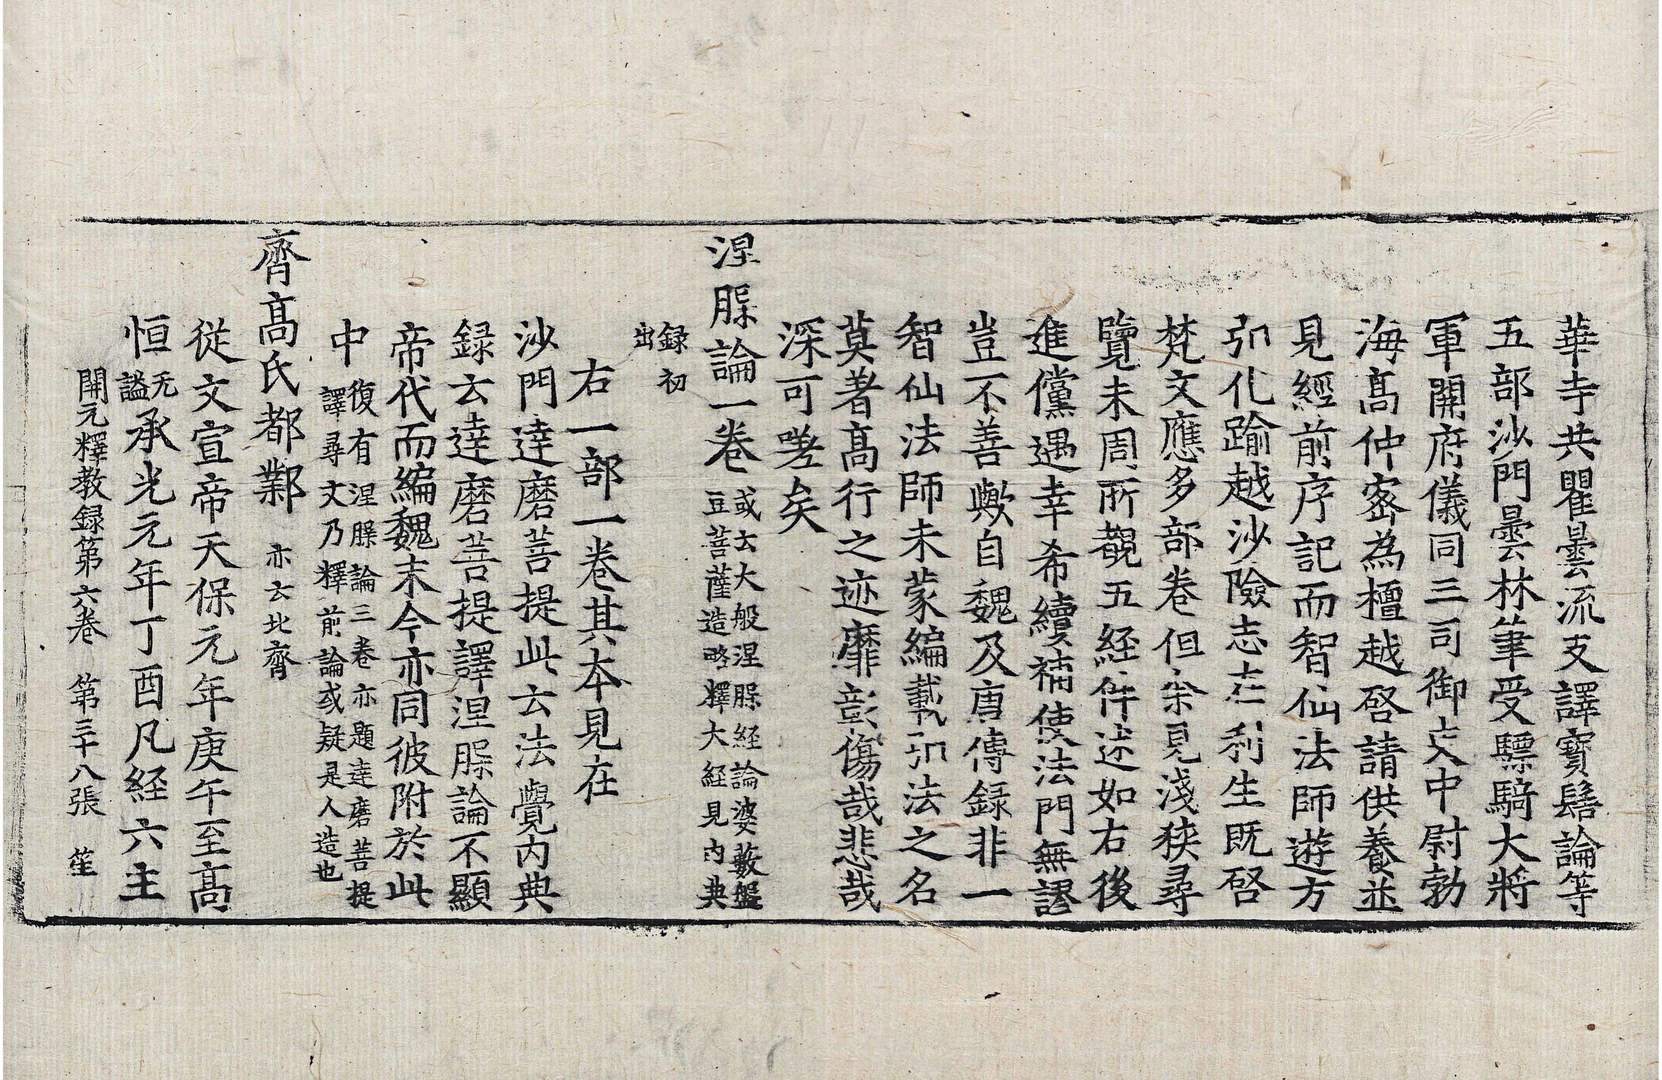 華寺共瞿曇流支譯寶髻論等
五部沙門曇林筆受驃騎大將
軍開府儀同三司御史中尉勃
海髙仲宻為檀越啓請供養並
見經前序記而智仙法師遊方
弘化踰越沙險志在利生既啓
梵文應多部卷但余見淺狹尋
覽未周所覩五経件述如右後
進儻遇幸希續補使法門無謬
豈不善歟自魏及唐傳録非一
智仙法師未蒙編載弘法之名
莫著髙行之迹靡彰傷哉悲哉
深可嗟矣
涅槃論一卷 或云大般涅槃経論婆藪盤
豆菩薩造略釋大経見内典
録初
出
右一部一卷其本見在
沙門達磨菩提此云法覺内典
録云達磨菩提譯涅槃論不顯
帝代而編魏末今亦同彼附於此
中 復有涅槃論三卷亦題達磨菩提
譯尋文乃釋前論或疑是人造也
齊髙氏都鄴 亦云北齊
従文宣帝天保元年庚午至髙
恒 无
謚 承光元年丁酉凡経六主
開元釋教録第六卷 第三十八張 笙